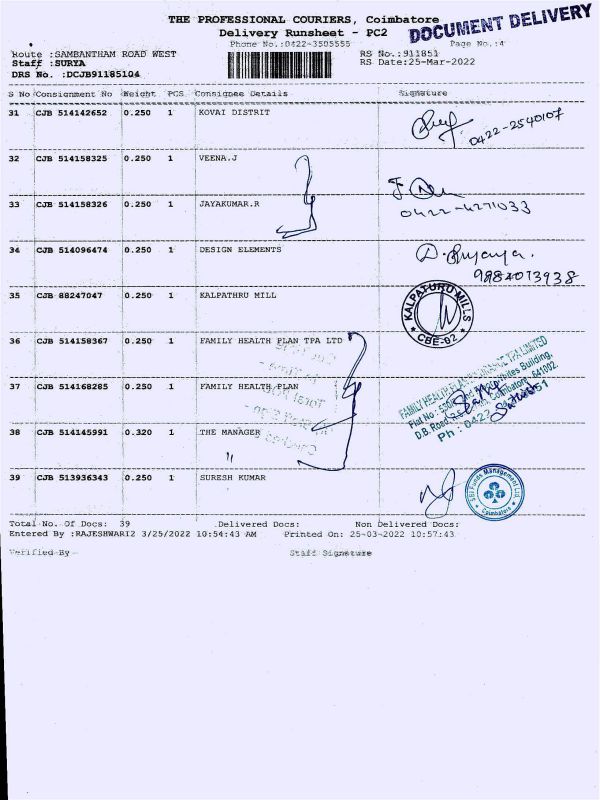 THE PROFESSIONAL COURIERS, Coimbatore
DOCUMENT DELIVERY
Delivery Runsheet - PC2
Phone No.:0422-3505555 Page No.:4
Route :SAMBANTHAM ROAD WEST RS No.:911851
Staff :SURYA RS Date:25-Mar-2022
DRS No. :DCJB91185104
S No Consignment No Weight PCS Consignee Details Signature
31 CJB 514142652 0.250 1 KOVAI DISTRIT
0422-2540107
32 CJB 514158325 0.250 1 VEENA.J
33 CJB 514158326 0.250 1 JAYAKUMAR.R
0422-4271033
34 CJB 514096474 0.250 1 DESIGN ELEMENTS
9884013938
35 CJB 88247047 0.250 1 KALPATHRU MILL
KALPATURU MILLS
CBE-02
36 CJB 514158367 0.250 1 FAMILY HEALTH PLAN TPA LTD
37 CJB 514168285 0.250 1 FAMILY HEALTH PLAN
FAMILY HEALTH PLAN INSURANCE TPA LIMITED
Flat No: Building,
D.B. Road, Coimbatore 641002
Ph : 0422
38 CJB 514145991 0.320 1 THE MANAGER
"
39 CJB 513936343 0.250 1 SURESH KUMAR
SBI Funds Management Ltd.
Coimbatore
Total No. Of Docs: 39 Delivered Docs: Non Delivered Docs:
Entered By :RAJESHWARI2 3/25/2022 10:54:43 AM Printed On: 25-03-2022 10:57:43
Verified By Staff Signature